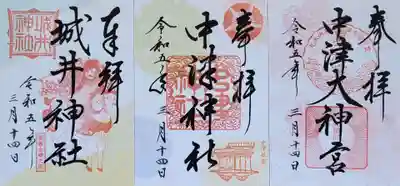 奉拝
城井神社
令和五年
三月十四日
奉拝
中津神社
令和五年
三月十四日
奉拝
中津大神宮
令和五年
三月十四日